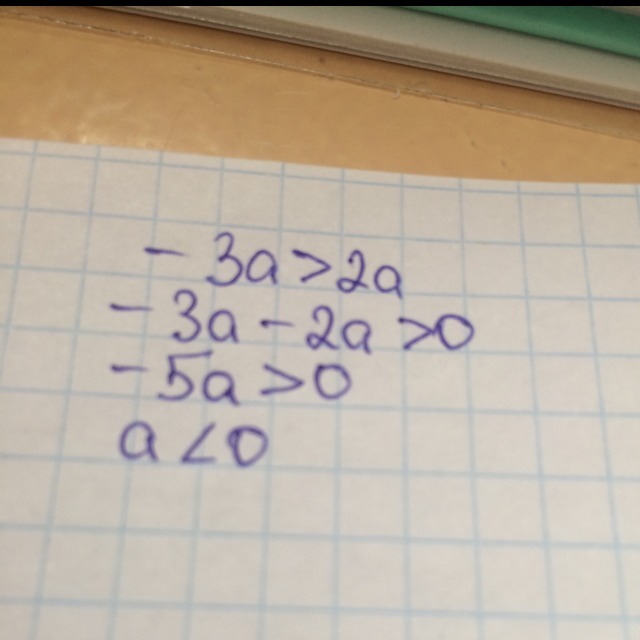 - 3a > 2a
- 3a - 2a > 0
- 5a > 0
a < 0